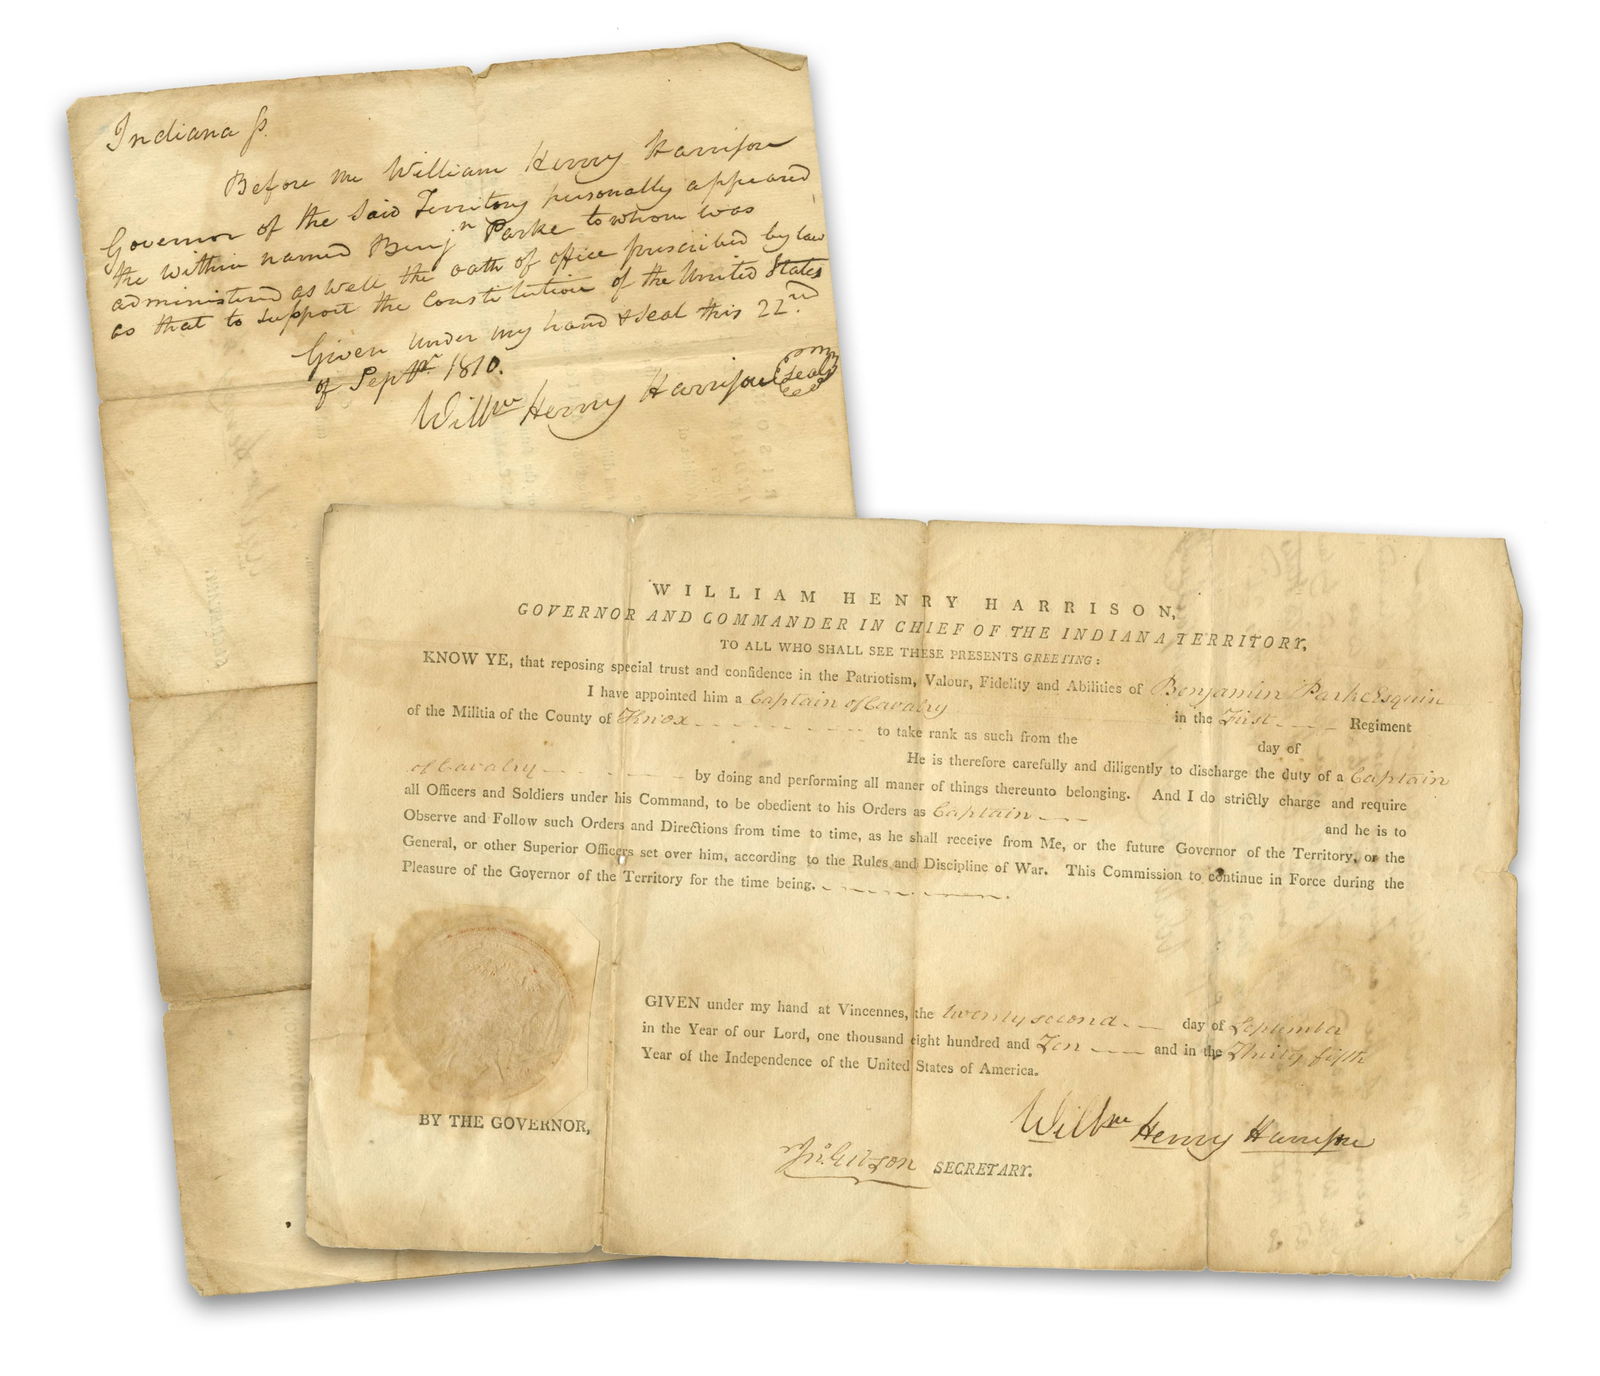 Indiana ss.
Before me William Henry Harrison
Governor of the said Territory personally appeared
the within named Benjn Parke to whom was
administered as well the oath of office prescribed by law
as that to support the Constitution of the United States
Given under my hand & seal this 22nd.
of Septr 1810.
Willm Henry Harrison Seal
WILLIAM HENRY HARRISON,
GOVERNOR AND COMMANDER IN CHIEF OF THE INDIANA TERRITORY,
TO ALL WHO SHALL SEE THESE PRESENTS GREETING:
KNOW YE, that reposing special trust and confidence in the Patriotism, Valour, Fidelity and Abilities of Benjamin Parke Esquire
I have appointed him a Captain of Cavalry in the First Regiment
of the Militia of the County of Knox to take rank as such from the day of
He is therefore carefully and diligently to discharge the duty of a Captain
of Cavalry by doing and performing all maner of things thereunto belonging. And I do strictly charge and require
all Officers and Soldiers under his Command, to be obedient to his Orders as Captain and he is to
Observe and Follow such Orders and Directions from time to time, as he shall receive from Me, or the future Governor of the Territory, or the
General, or other Superior Officers set over him, according to the Rules and Discipline of War. This Commission to continue in Force during the
Pleasure of the Governor of the Territory for the time being.
GIVEN under my hand at Vincennes, the twenty second day of September
in the Year of our Lord, one thousand eight hundred and Ten and in the Thirty fifth
Year of the Independence of the United States of America.
Willm Henry Harrison
BY THE GOVERNOR,
Jno. Gibson SECRETARY.